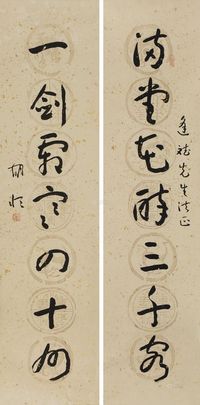 滿堂花醉三千客
先生法正
一劍霜寒四十州
胡